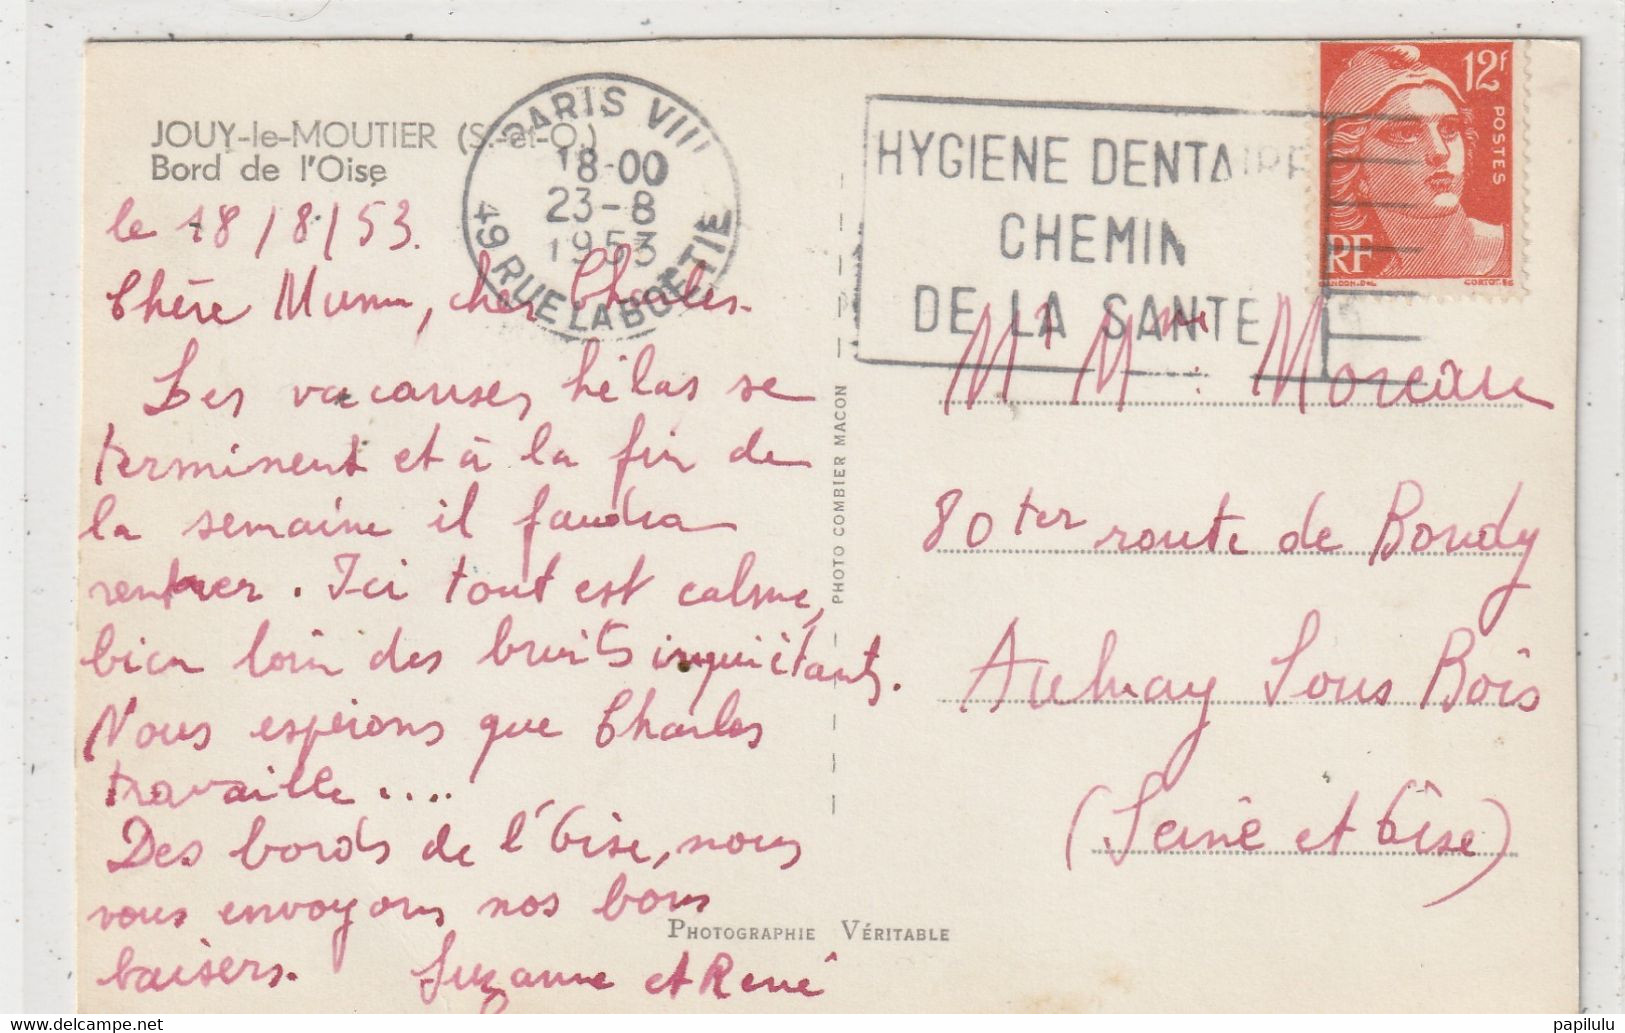 JOUY-le-MOUTIER (S.-et-O.)
Bord de l'Oise
PARIS VIII
18-00
23-8
1953
49 RUE LA BOETIE
HYGIENE DENTAIRE
CHEMIN
DE LA SANTE
12f
POSTES
RF
le 18/8/53.
Chère Mumu, cher Charles.
Les vacanses, hélas se
terminent et à la fin de
la semaine il faudra
rentrer. Ici tout est calme,
bien loin des bruits inquiétants.
Nous espérons que Charles
travaille....
Des bords de l'Oise, nous
vous envoyons nos bons
baisers. Suzanne et René
PHOTO COMBIER MACON
PHOTOGRAPHIE VÉRITABLE
Mr Mme Moreau
80ter route de Bondy
Aulnay Sous Bois
(Seine et Oise)
papilulu